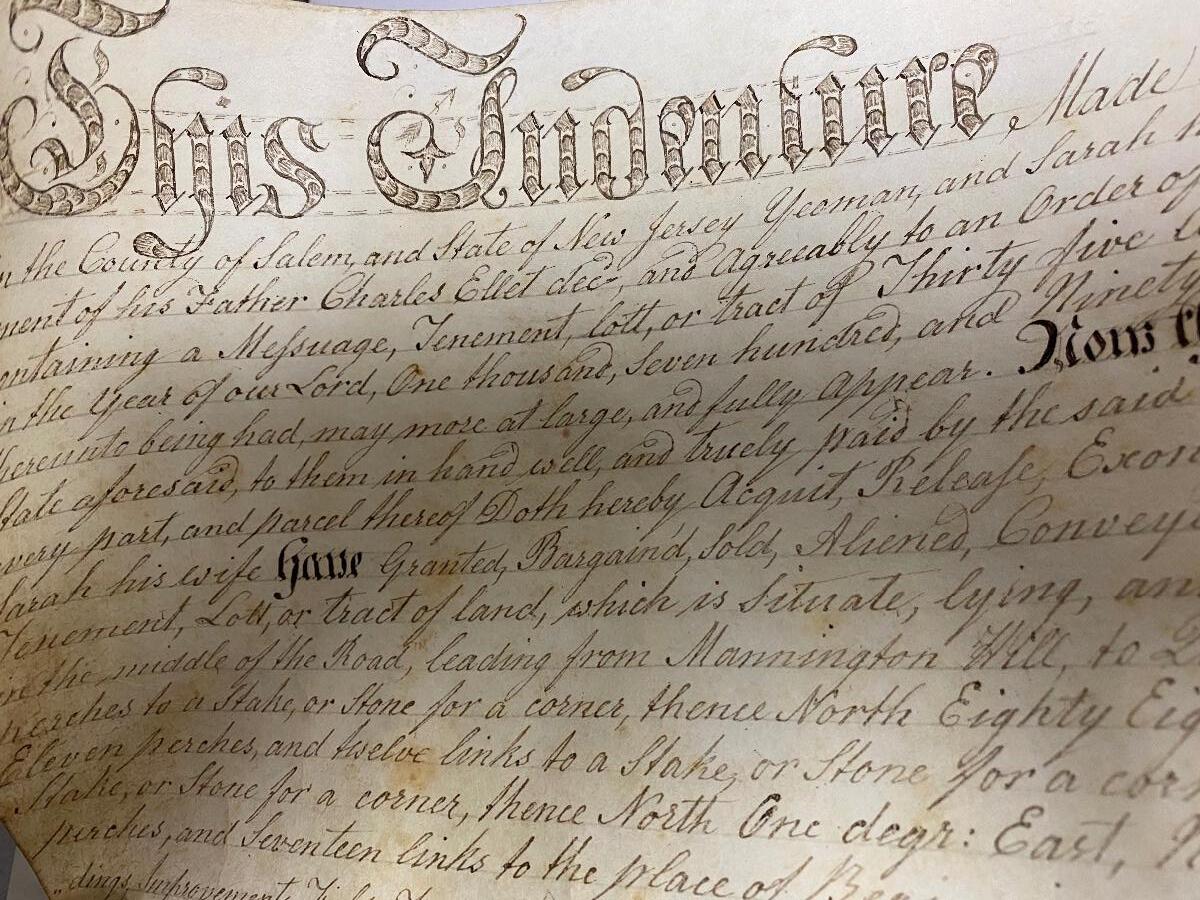 This Indenture Made
in the County of Salem, and State of New Jersey Yeoman, and Sarah
ment of his Father Charles Ellet decd, and Agreeably to an Order of
ontaining a Messuage, Tenement, lott, or tract of Thirty five
in the Year of our Lord, One thousand, Seven hundred, and Ninety
hereunto being had, may more at large, and fully Appear. Now
State aforesaid, to them in hand well, and truely paid by the said
every part, and parcel thereof Doth hereby Acquit, Release, Exon
Sarah his wife Have Granted, Bargain'd, Sold, Aliened, Convey
Tenement, Lott, or tract of land, which is Situate, lying, an
in the middle of the Road, leading from Mannington Hill, to
perches to a Stake, or Stone for a corner, thence North Eighty Eig
Eleven perches, and twelve links to a Stake, or Stone for a cor
Stake, or Stone for a corner, thence North One degr: East,
perches, and Seventeen links to the place of
dings, Improvements,